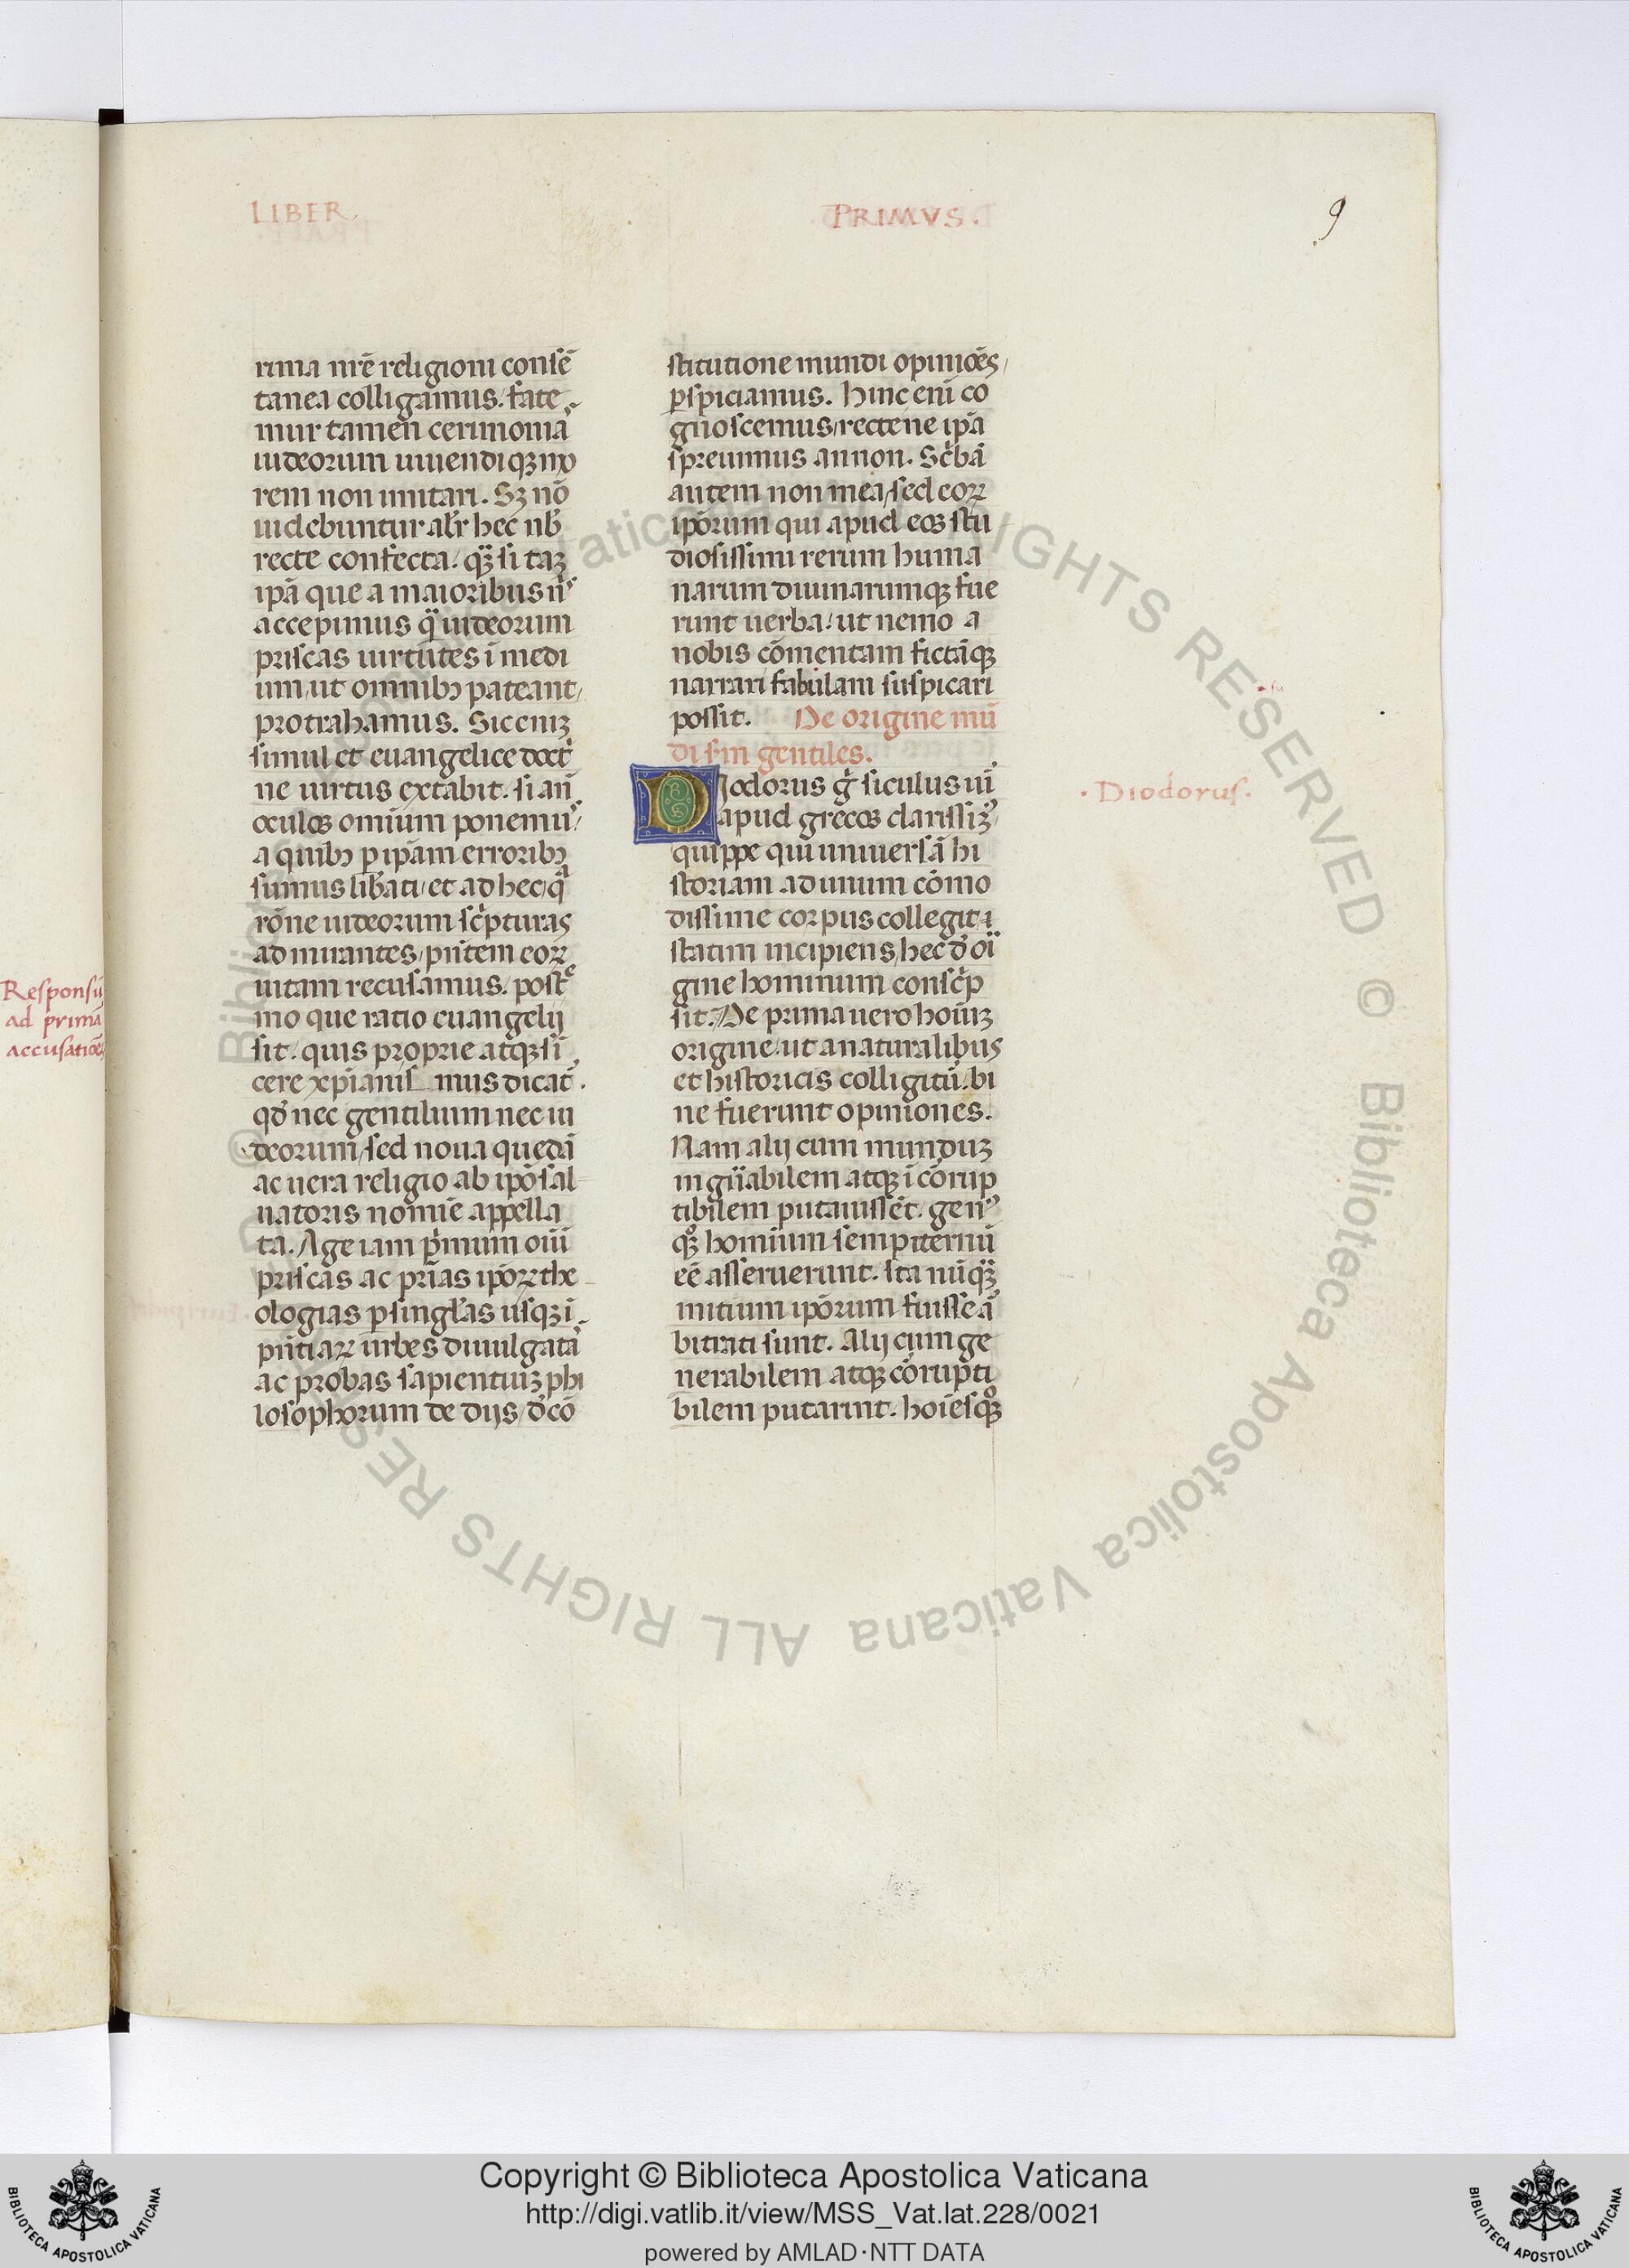 LIBER
PRIMVS.
9
rima nr̄e religioni consē
tanea colligamus. fate
mur tamen cerimonia
iudeorum uiuendiqꝫ mo
rem non imitari. Sꝫ nō
uidebuntur alr̄ hec nb̄
recte confecta. qꝫ si
ipā que a maioribus
accepimus iudeorum
priscas uirtutes ī medi
um, ut omnibꝫ pateant,
protrahamus. Sic enīꝫ
simul et euangelice doct
ne uirtus extabit. si an̄
oculos omium ponemus
a quibꝫ ꝑ ipam erroribꝫ
sumus libati, et ad hec
rōne iudeorum scpturas
admirantes, pn̄tem eoꝝ
uitam recusamus. post
mo que ratio euangelij
sit. quis proprie atqꝫ si
cere xp̄ianis mus dicat.
qđ nec gentilium nec iu
deorum, sed noua quedā
ac uera religio ab ipō sal
uatoris nomīe appella
ta. Age iam pmum oīu
priscas ac prīas ipōꝝ the
ologias ꝑ singlas usqꝫ ī
pn̄tiaꝝ urbes diuulgata
ac probas sapientuꝫ phi
losophorum de dijs, đ cō
stitutione mundi opinioēs,
ꝑspiciamus. Hinc enī co
gnoscemus, rectene ipā
spreuimus annon. Scbā
autem non mea, sed eoꝝ
ipōrum qui apud eos stu
diosissimi rerum huma
narum diuinarumqꝫ fue
runt uerba. ut nemo a
nobis cōmentam fictāqꝫ
narrari fabulam suspicari
possit. De origine mū
di sm gentiles.
Diodorus g siculus ui
apud grecos clarissiꝫ
quippe qui uniuersā hi
storiam ad unum cōmo
dissime corpus collegit,
statim incipiens, hec đ oi
gine hominum conscp
sit. De prima uero hoiūꝫ
origine, ut a naturalibus
et historicis colligitū. bi
ne fuerunt opiniones.
Nam alij cum munduꝫ
ingn̄abilem atqꝫ īcōrup
tibilem putauissēt. gen
qꝫ homium sempiternū
eē asseruerunt. ita nūqꝫ
initium ipōrum fuisse a
bitrati sunt. Alij cum ge
nerabilem atqꝫ cōrupti
bilem putarint. hoiēsqꝫ
Diodorus.
Responsū
ad primā
accusatiōē
Copyright © Biblioteca Apostolica Vaticana
http://digi.vatlib.it/view/MSS_Vat.lat.228/0021
powered by AMLAD·NTT DATA
BIBLIOTECA APOSTOLICA VATICANA
BIBLIOTECA APOSTOLICA VATICANA
© Biblioteca Apostolica Vaticana ALL RIGHTS RESERVED
© Biblioteca Apostolica Vaticana ALL RIGHTS RESERVED